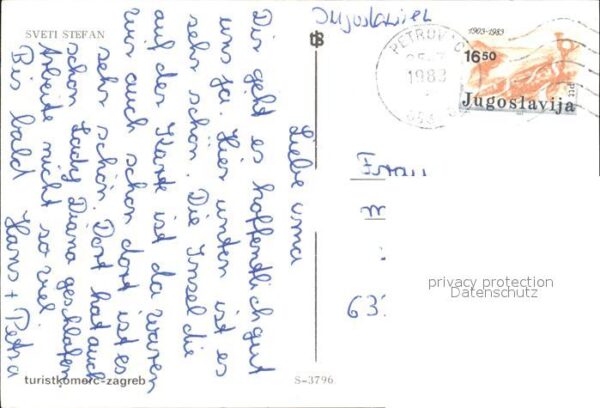 SVETI STEFAN
Jugoslawien
PETROVAC
1983
1903-1983
16.50
ptt
Jugoslavija
Liebe Oma
Dir geht es hoffentlich gut
uns ja. Hier unten ist es
sehr schön. Die Insel die
auf der Karte ist da waren
wir auch schon dort ist es
sehr schön. Dort hat auch
schon Lady Diana geschlafen
Arbeite nicht so viel.
Bis bald Hans + Petra
Frau
63
privacy protection
Datenschutz
turistkomerc-zagreb
S-3796